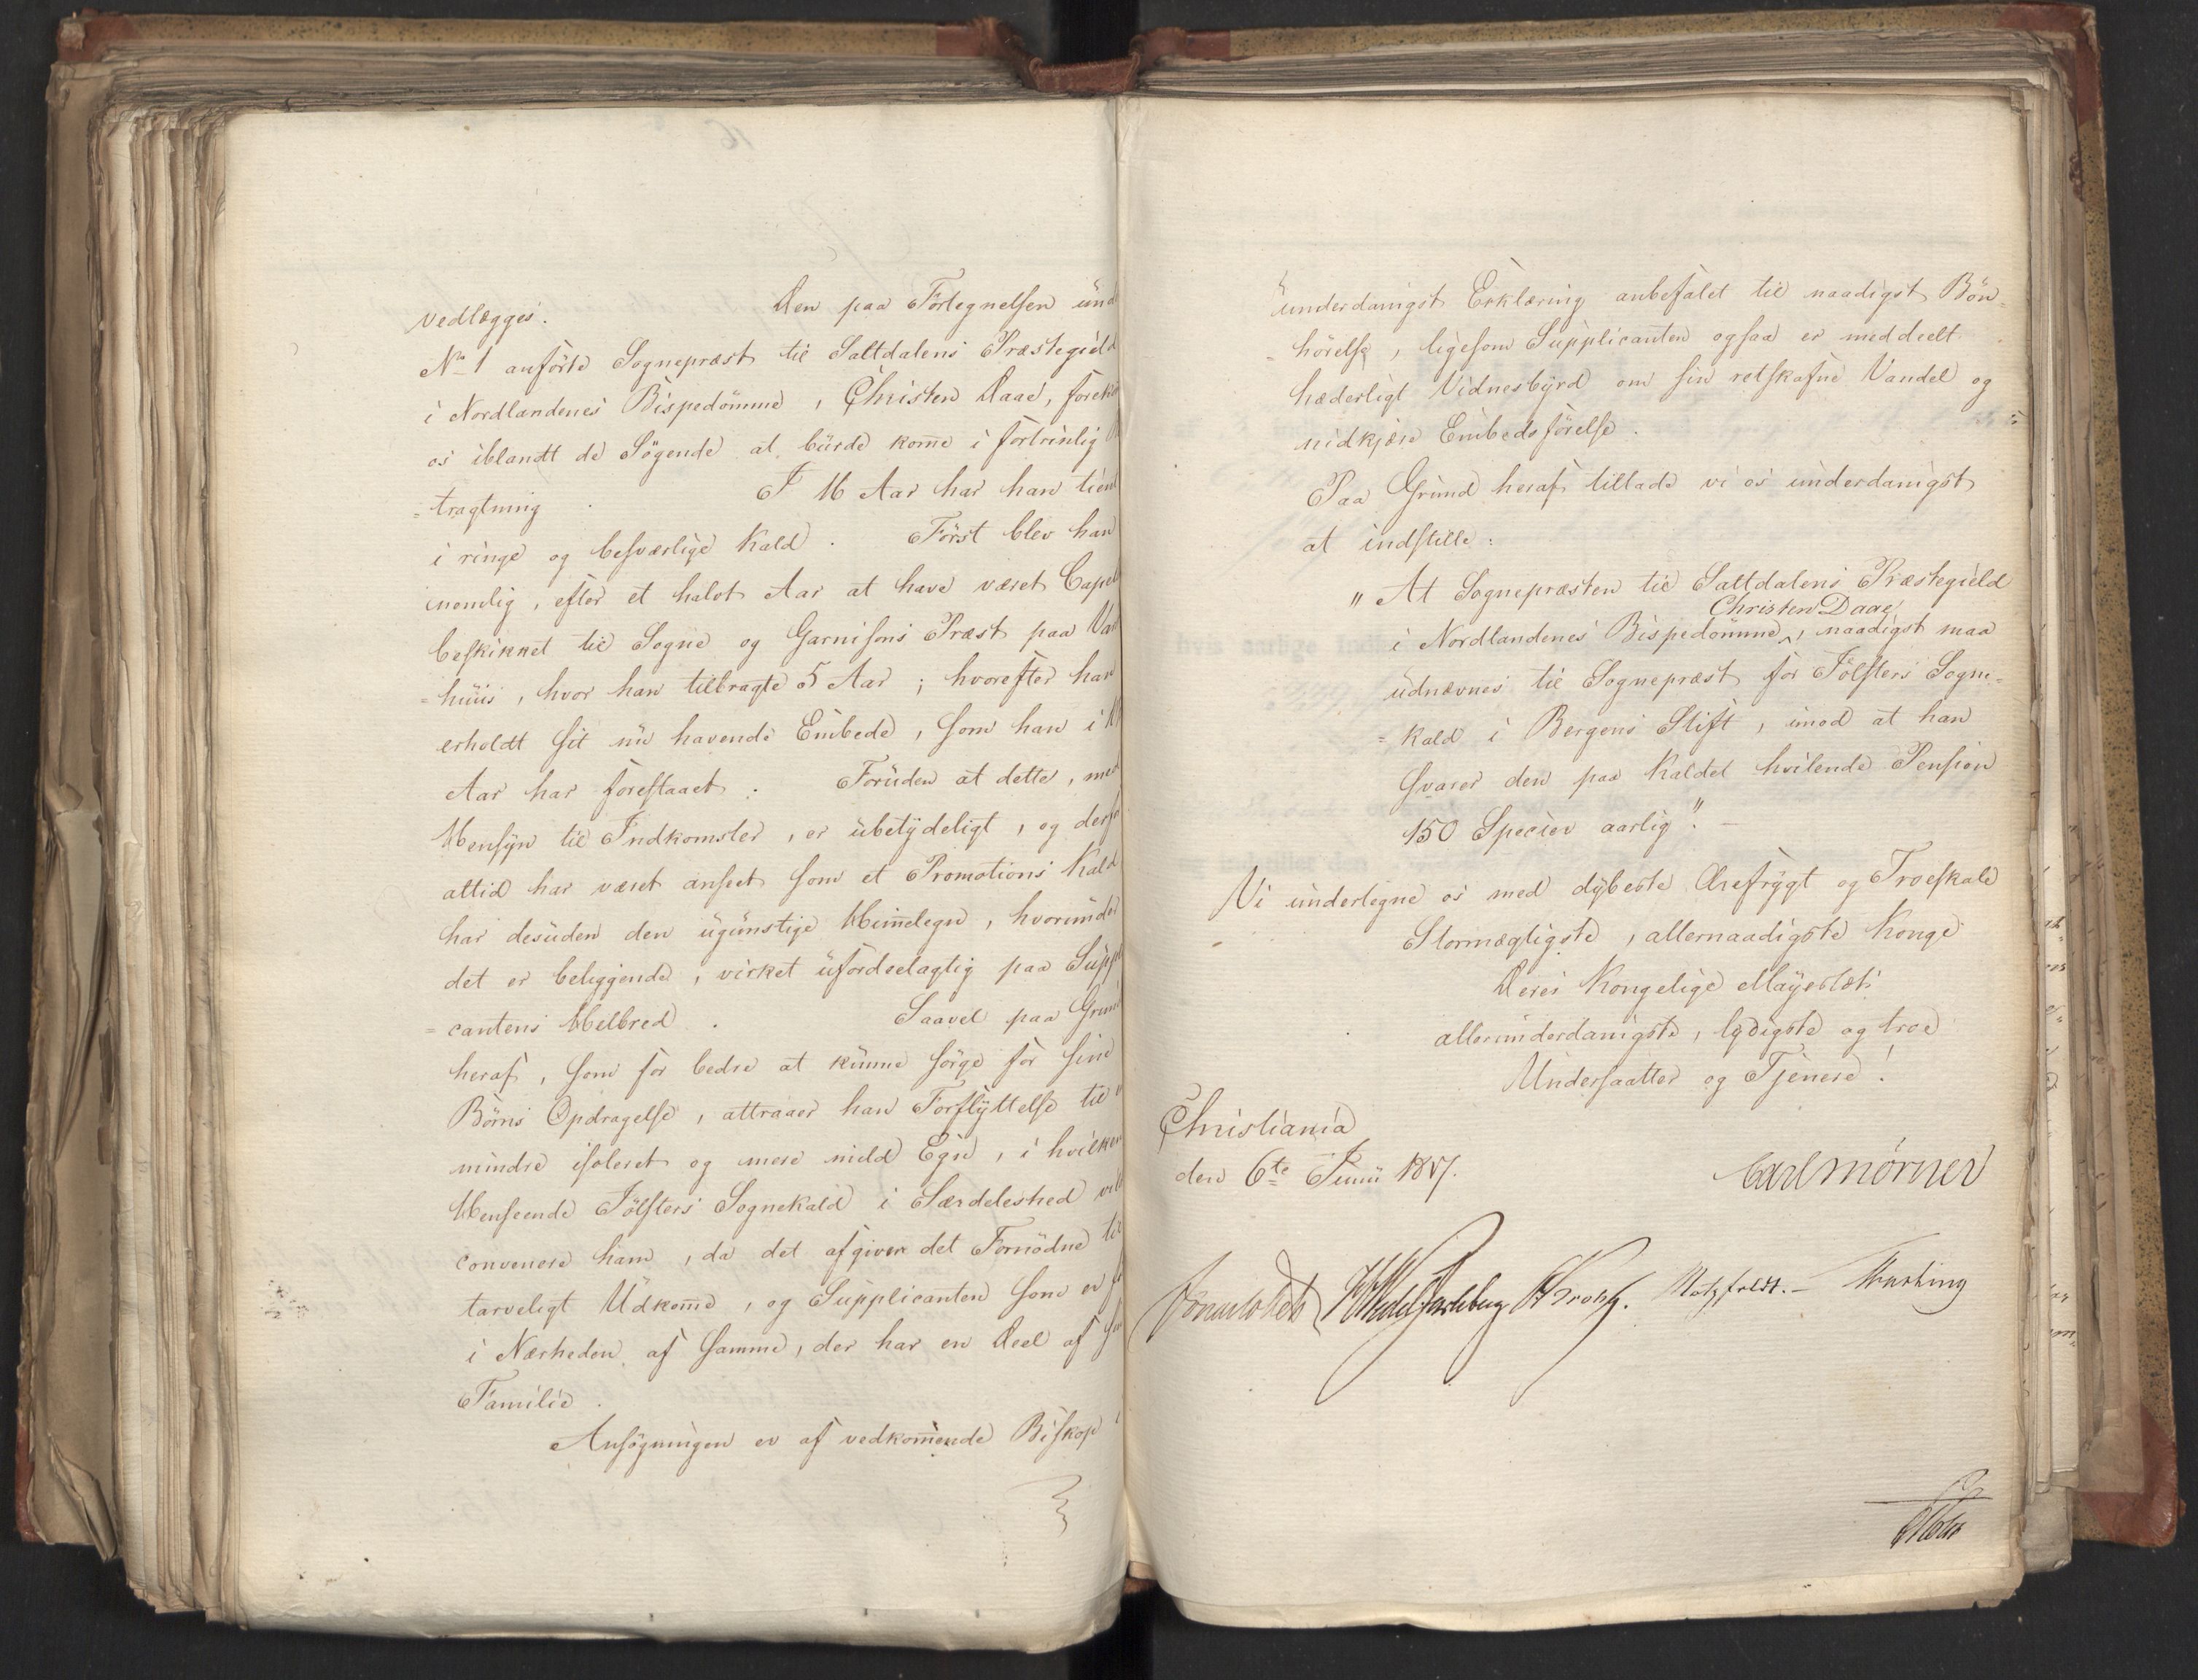 vedlægges. Den paa Fortegnelsen und
No 1 anførte Sognepræst til Saltdalens Præstegield
i Nordlandenes Bispedømme, Christen Daae, forek
os iblandt de Søgende at burde kom̅e i fortrinlig
=tragtning. I 16 Aar har han tient
i ringe og besværlige Kald. Först blev han
nemlig, efter et halvt Aar at have været Capel
beskikket til Sogne og Garnisons Præst paa Var
=huus, hvor han tilbragte 5 Aar; hvorefter han
erholdt sit nu havende Embede, som han i
Aar har forestaaet. Foruden at dette, med
Hensyn til Indkomster, er ubetydeligt, og derfo
altid har været anseet som et Promotions Kald
har desuden den ugunstige Him̅elegn, hvorunder
det er beliggende, virket ufordeelagtig paa Suppl
=cantens Helbred. Saavel paa Grund
heraf, som for bedre at kunne sörge for sine
Börns Opdragelse, attraaer han Forflyttelse til
mindre isoleret og mere mild Egn, i hvilken
Henseende Jölsters Sognekald i Særdeleshed vil
convenere ham, da det afgiver det Fornödne til
tarveligt Udkom̅e, og Supplicanten som er
i Nærheden af samme, der har en Deel af
Familie.
Ansøgningen er af vedkom̅ende Biskop
underdanigst Erklæring anbefalet til naadigst Bön=
=hörelse, ligesom Supplicanten ogsaa er meddeelt
hæderligt Vidnesbyrd om sin retskafne Vandel og
nidkjære Embedsförelse.
Paa Grund heraf tillade vi os underdanigst
at indstille:
"At Sognepræsten til Saltdalens Præstegield
Christen Daae
i Nordlandenes Bispedömme, naadigst maa
udnævnes til Sognepræst for Jölsters Sogne=
=kald i Bergens Stift, imod at han
svarer den paa Kaldet hvilende Pension
150 Species aarlig". —
Vi undertegne os med dybeste Ærefrygt og Troeskab
Stormægtigste, allernaadigste Konge
Deres Kongelige Mayestæts
allerunderdanigste, lydigste og troe
Undersaatter og Tjenere!
Christiania
den 6te Junii 1817.
Carl Mörner
Sommerhielm HWedel Jarlsberg CKrohg. Motzfeldt. — Thulstrup